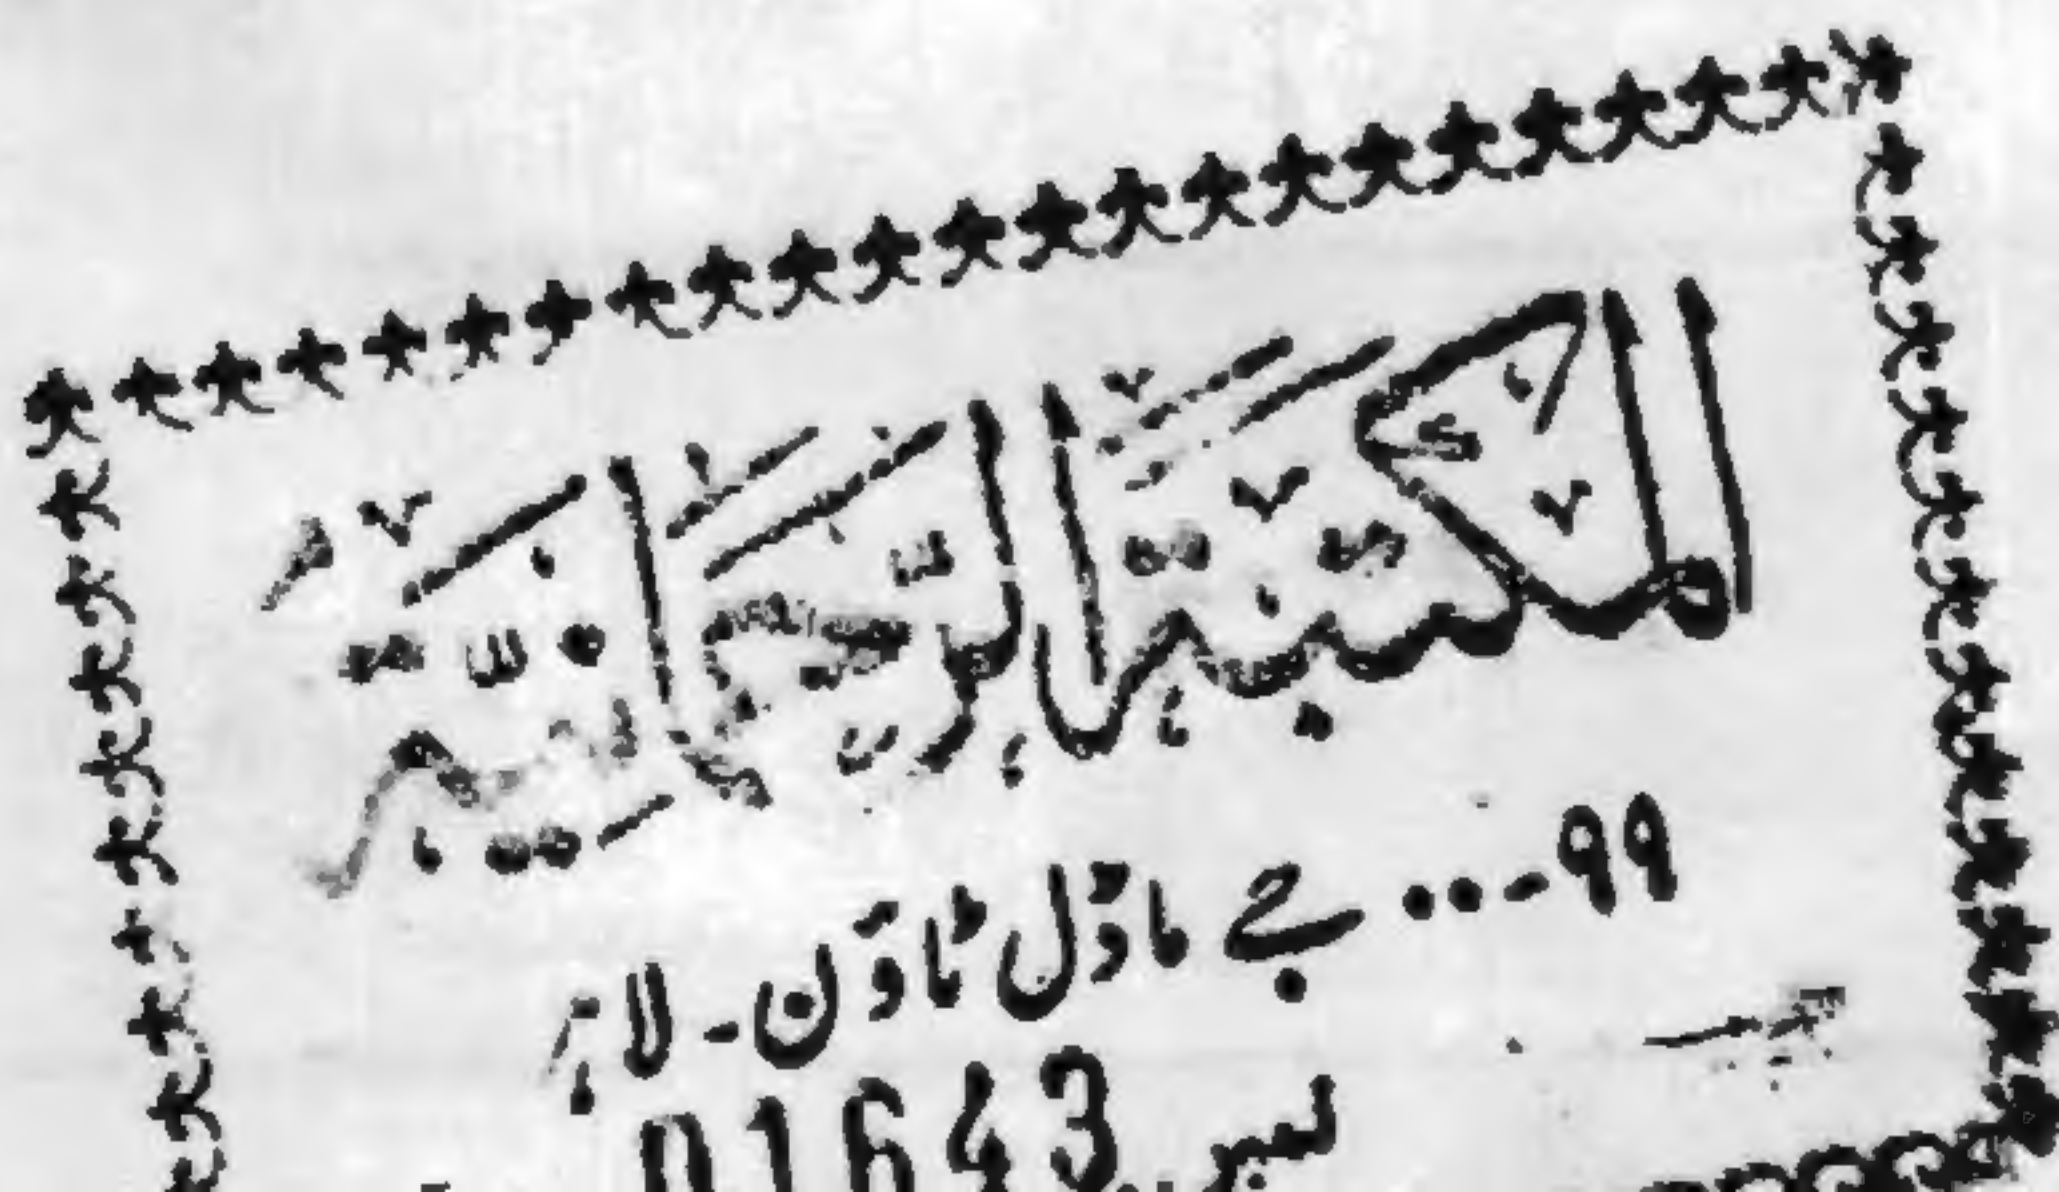 المكتبة الرحمانية
۹۹...جے ماڈل ٹاؤن - لا
نمبر 01643